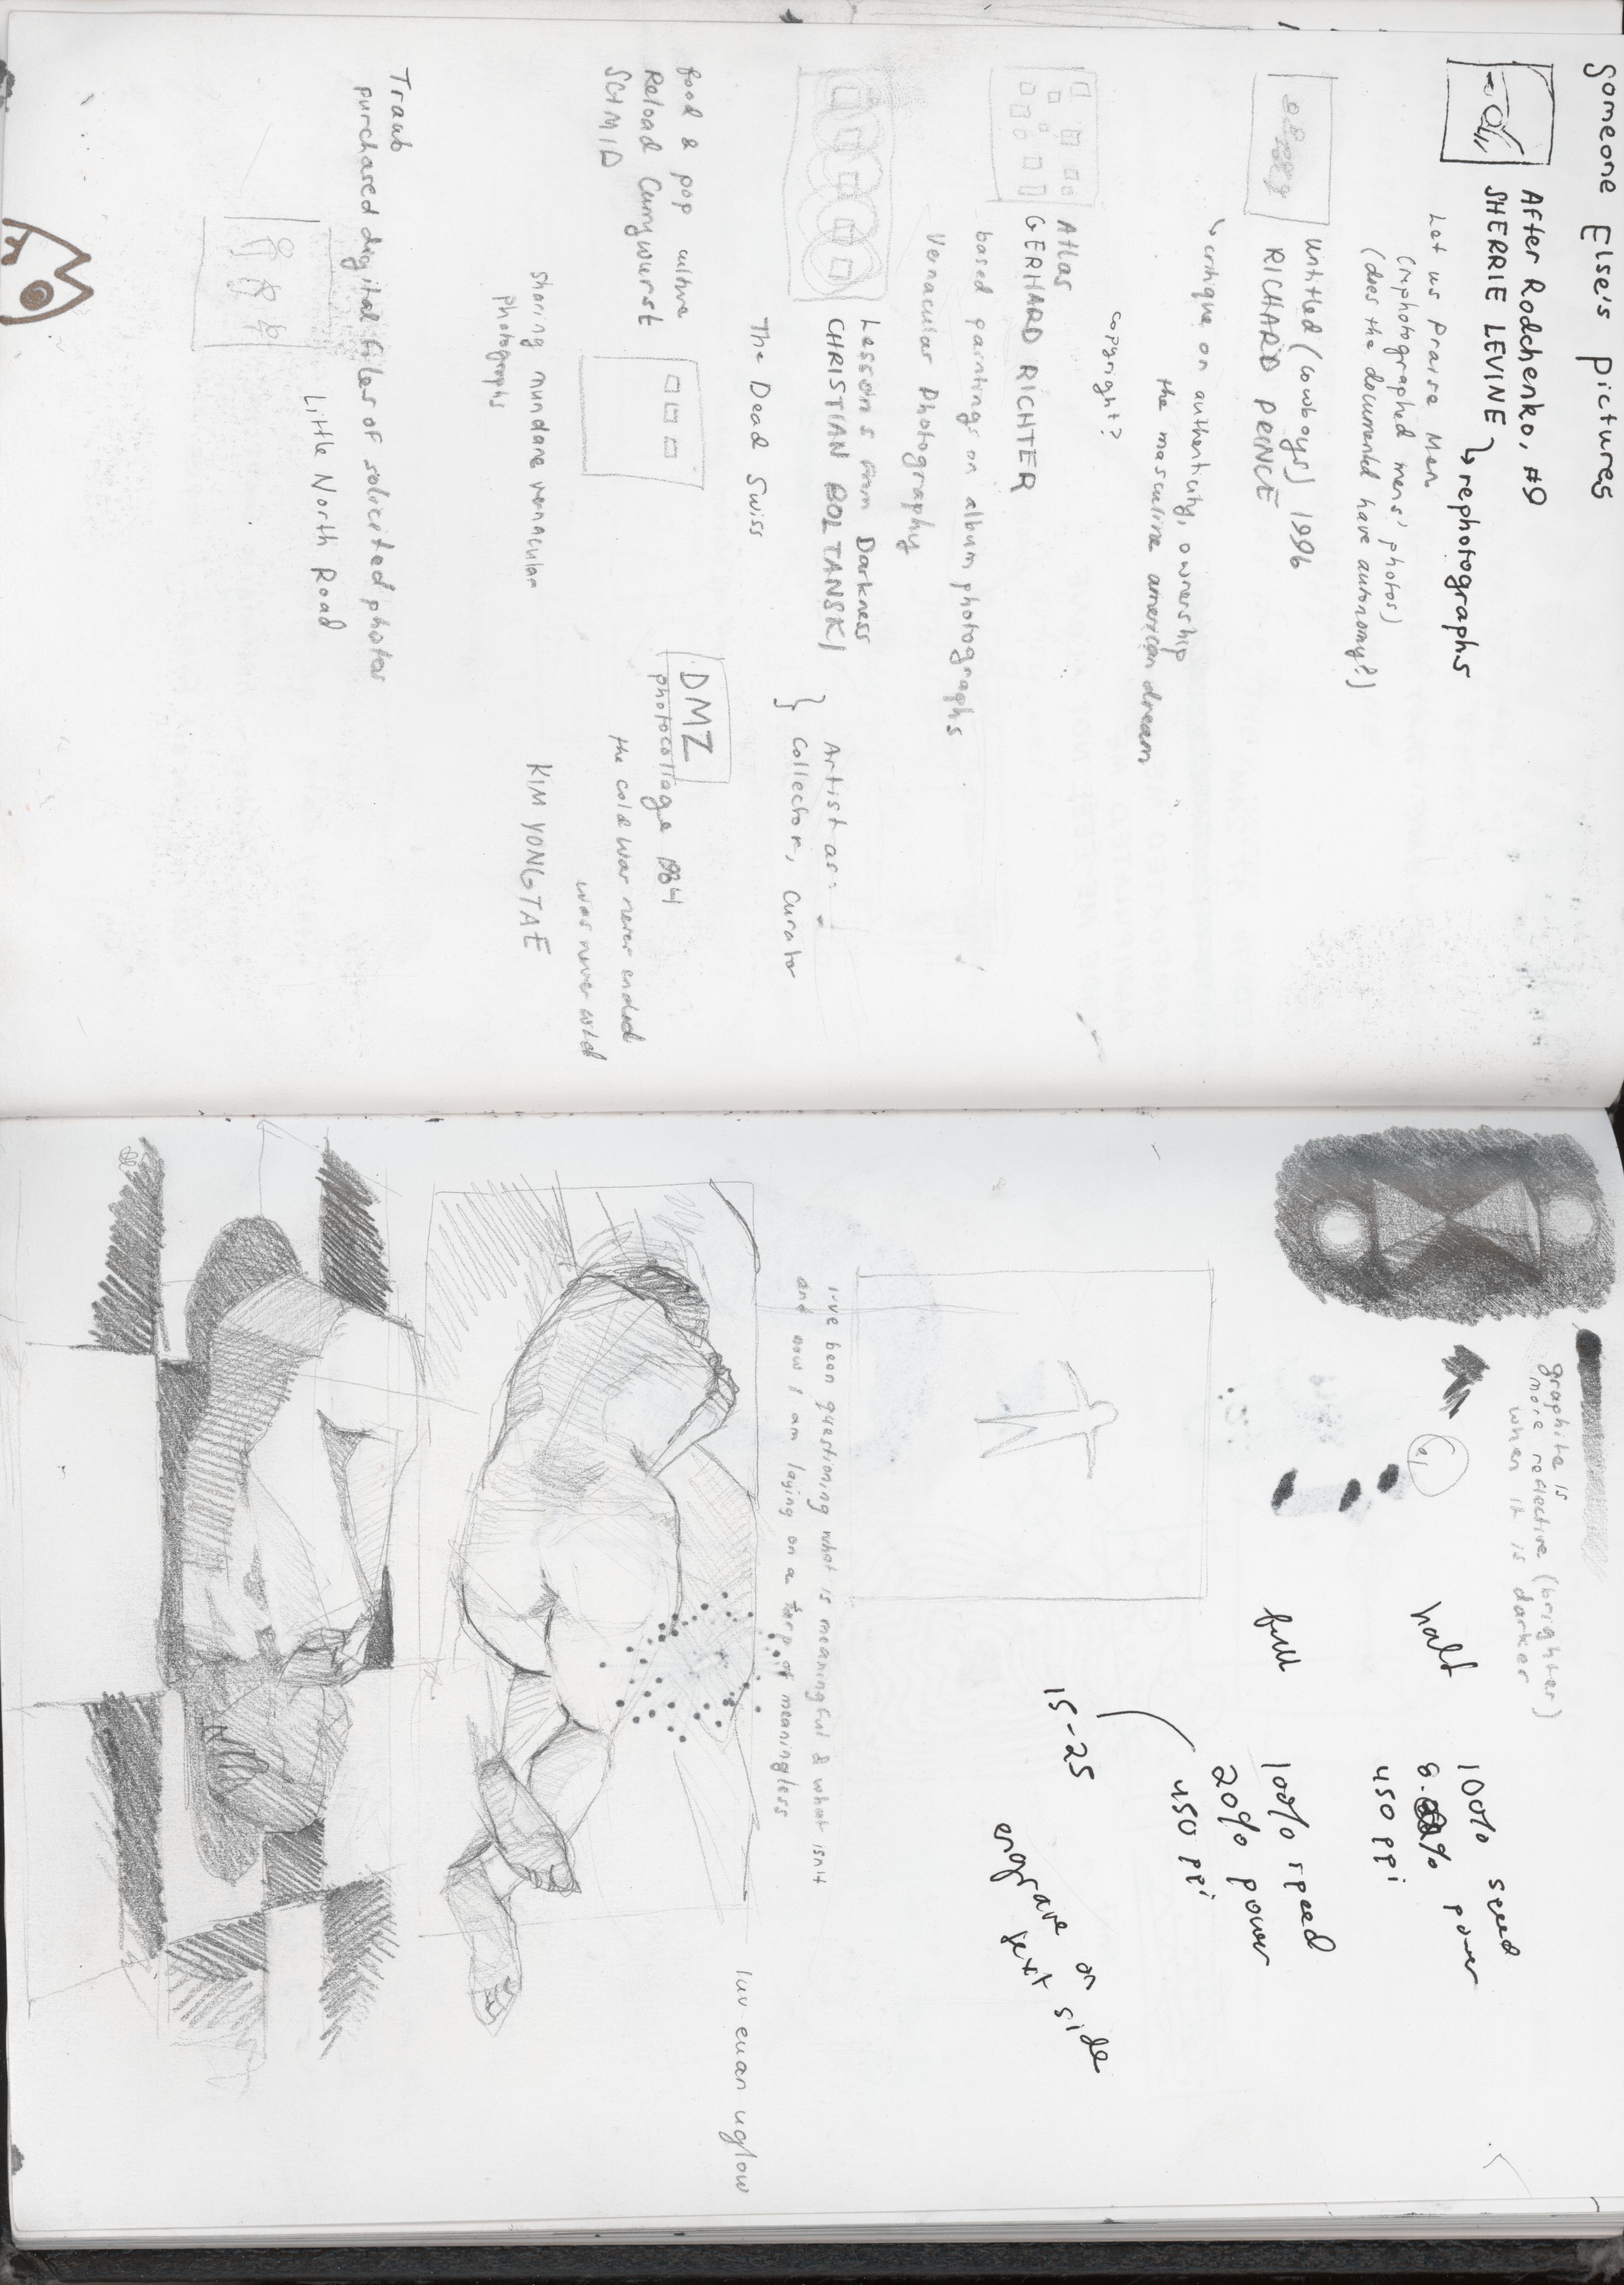 Someone Else's pictures
After Rodchenko, #9
SHERRIE LEVINE
↳ rephotographs
Let us Praise Men
(rephotographed mens' photos)
(does the documented have autonomy?)
Untitled (cowboys) 1996
RICHARD PRINCE
↳ critique on authenticity, ownership
the masculine american dream
copyright?
Atlas
GERHARD RICHTER
based paintings on album photographs
Vernacular Photography
Lessons from Darkness
CHRISTIAN BOLTANSKI
The Dead Swiss
} Artist as:
Collector, Curator
food & pop culture
Reload Currywurst
SCHMID
sharing mundane vernacular
photographs
DMZ
photocollage 1984
the cold war never ended
was never cold
KIM YONGTAE
Traub
purchased digital files of solicited photos
Little North Road
graphite is
more reflective (brighter)
when it is darker
half
100% speed
% power
450 ppi
full
100% speed
20% power
450 ppi
15-25
engrave on
text side
i've been questioning what is meaningful & what isn't
and now i am laying on a tarp of meaningless
luv euan uglow